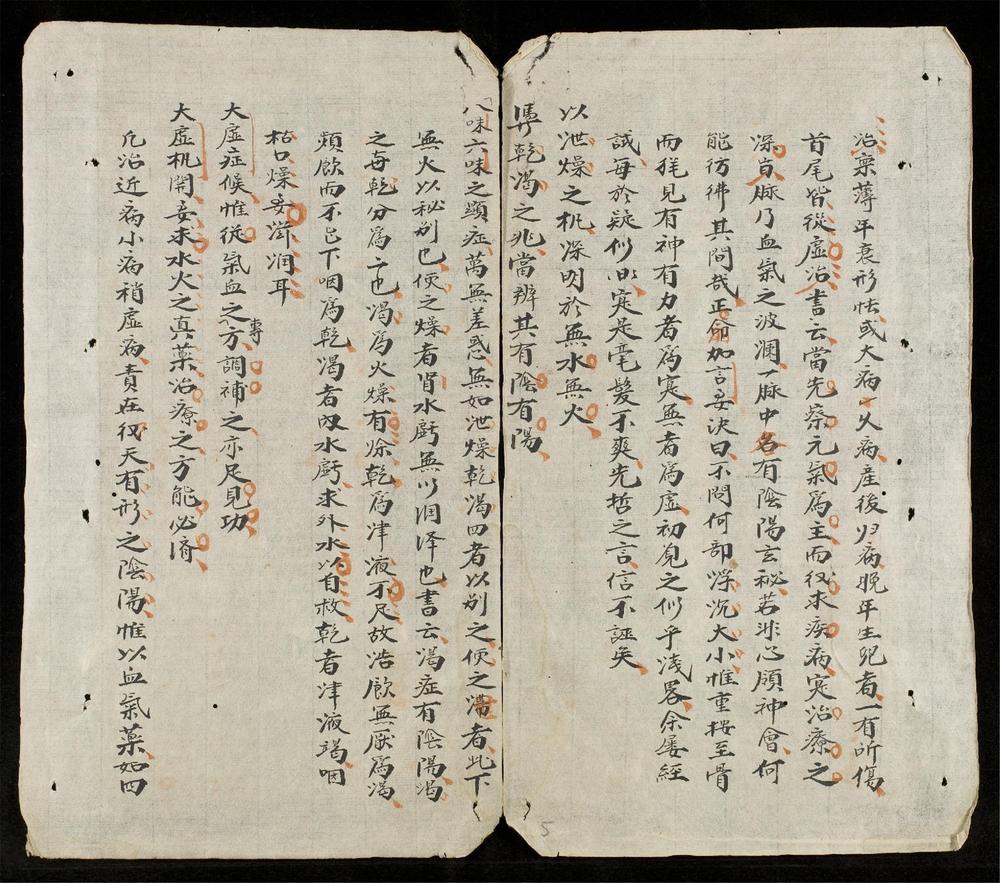 治稟薄年衰形怯或大病久病産後归病晚年生兒者一有所傷
首尾皆從虛治書云當先察元氣為主而後求疾病寔治療之
深旨脉乃血氣之波瀾一脉中各有陰陽玄秘若非心領神會何
能彷彿其間哉正俞加言妄决曰不問何部浮沉大小惟重按至骨
而拜見有神有力者為寔無者為虛初覓之似乎淺畧余屡經
誠每於疑似寔是毫髮不爽先哲之言信不誣矣
以泄燥之机深明於無水無火
乾渴之兆當辨其有陰有陽
八味六味之顯症萬無差惑無如泄燥乾渴四者以别之便之溏者此下
無火以秘别也便之燥者腎水虧無以润泽也書云渴症有陰陽渴
之與乾分為二也渴為火燥有餘乾為津液不足故浩飲無厭為渴
頻飲而不下咽為乾渴者内水虧求外水以自救乾者津液竭咽
枯口燥妄滋润耳
大虛症候惟從氣血之方調補之亦足見功
專
大虛机関妄求水火之真薬治療之方能必濟
凡治近病小病稍虛病責在後天有形之陰陽惟以血氣薬如四
5